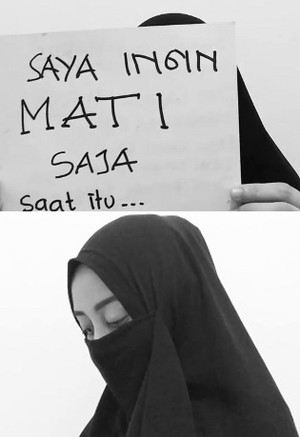 SAYA INGIN
MATI
SAJA
Saat itu...